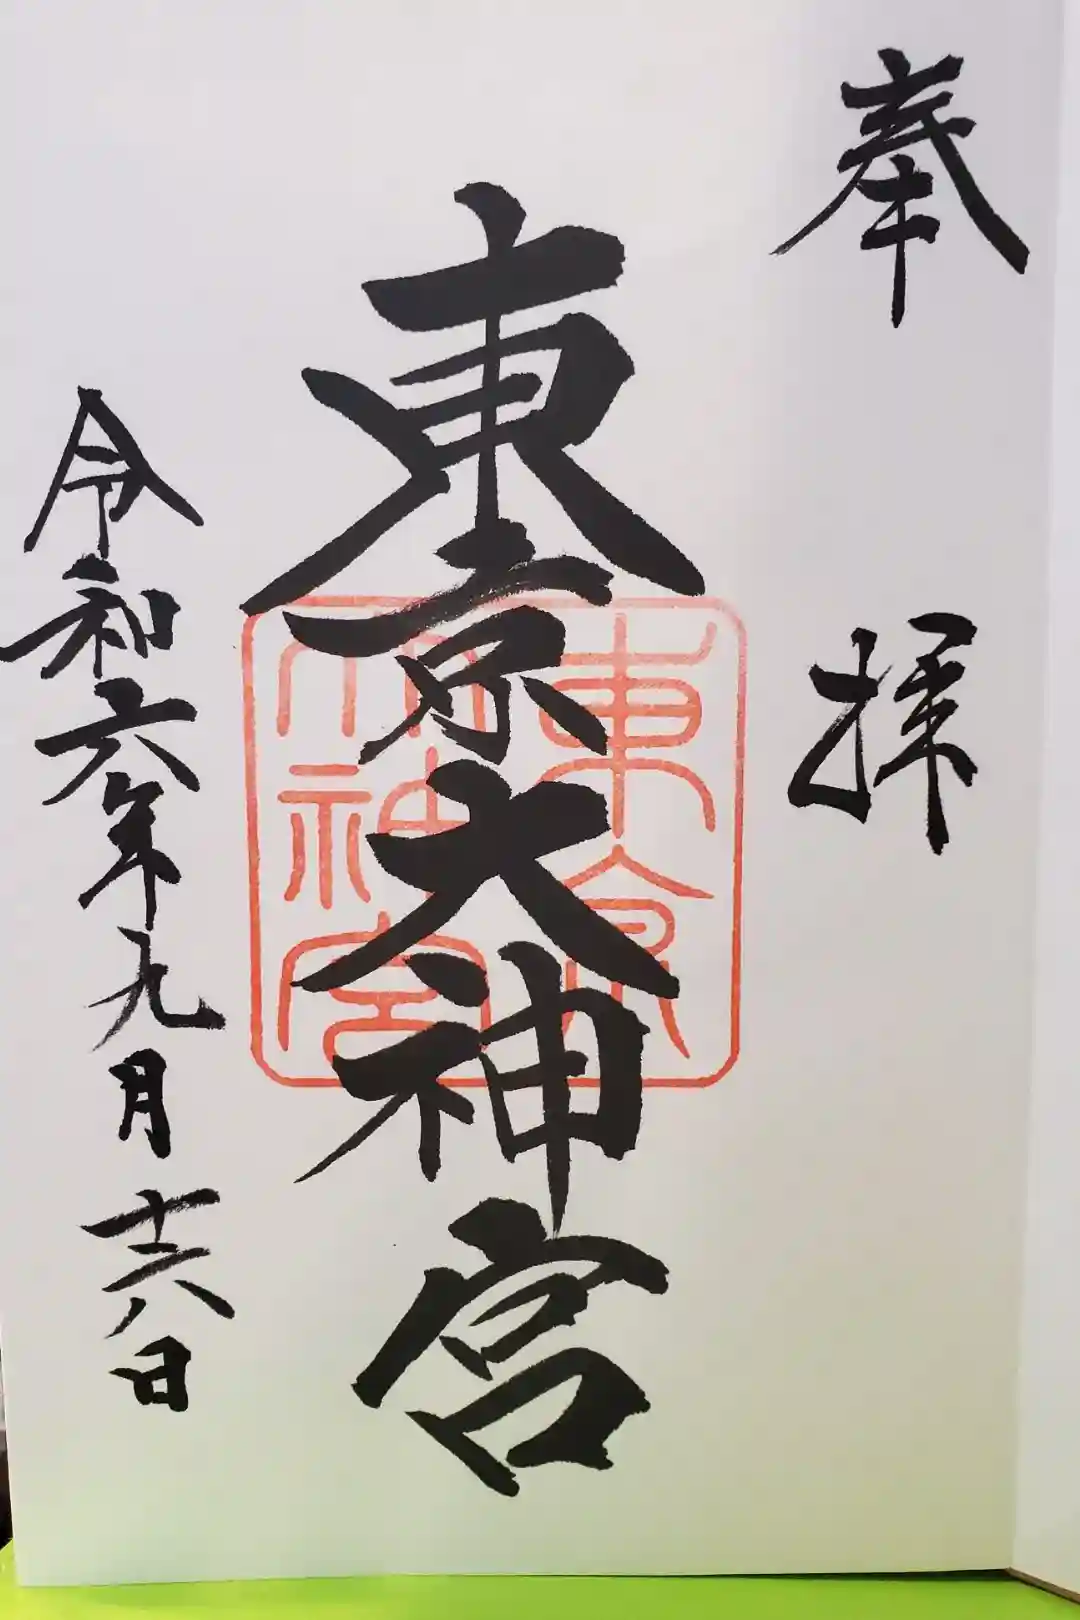 奉拝
東京大神宮
東京
大神宮
令和六年九月十六日